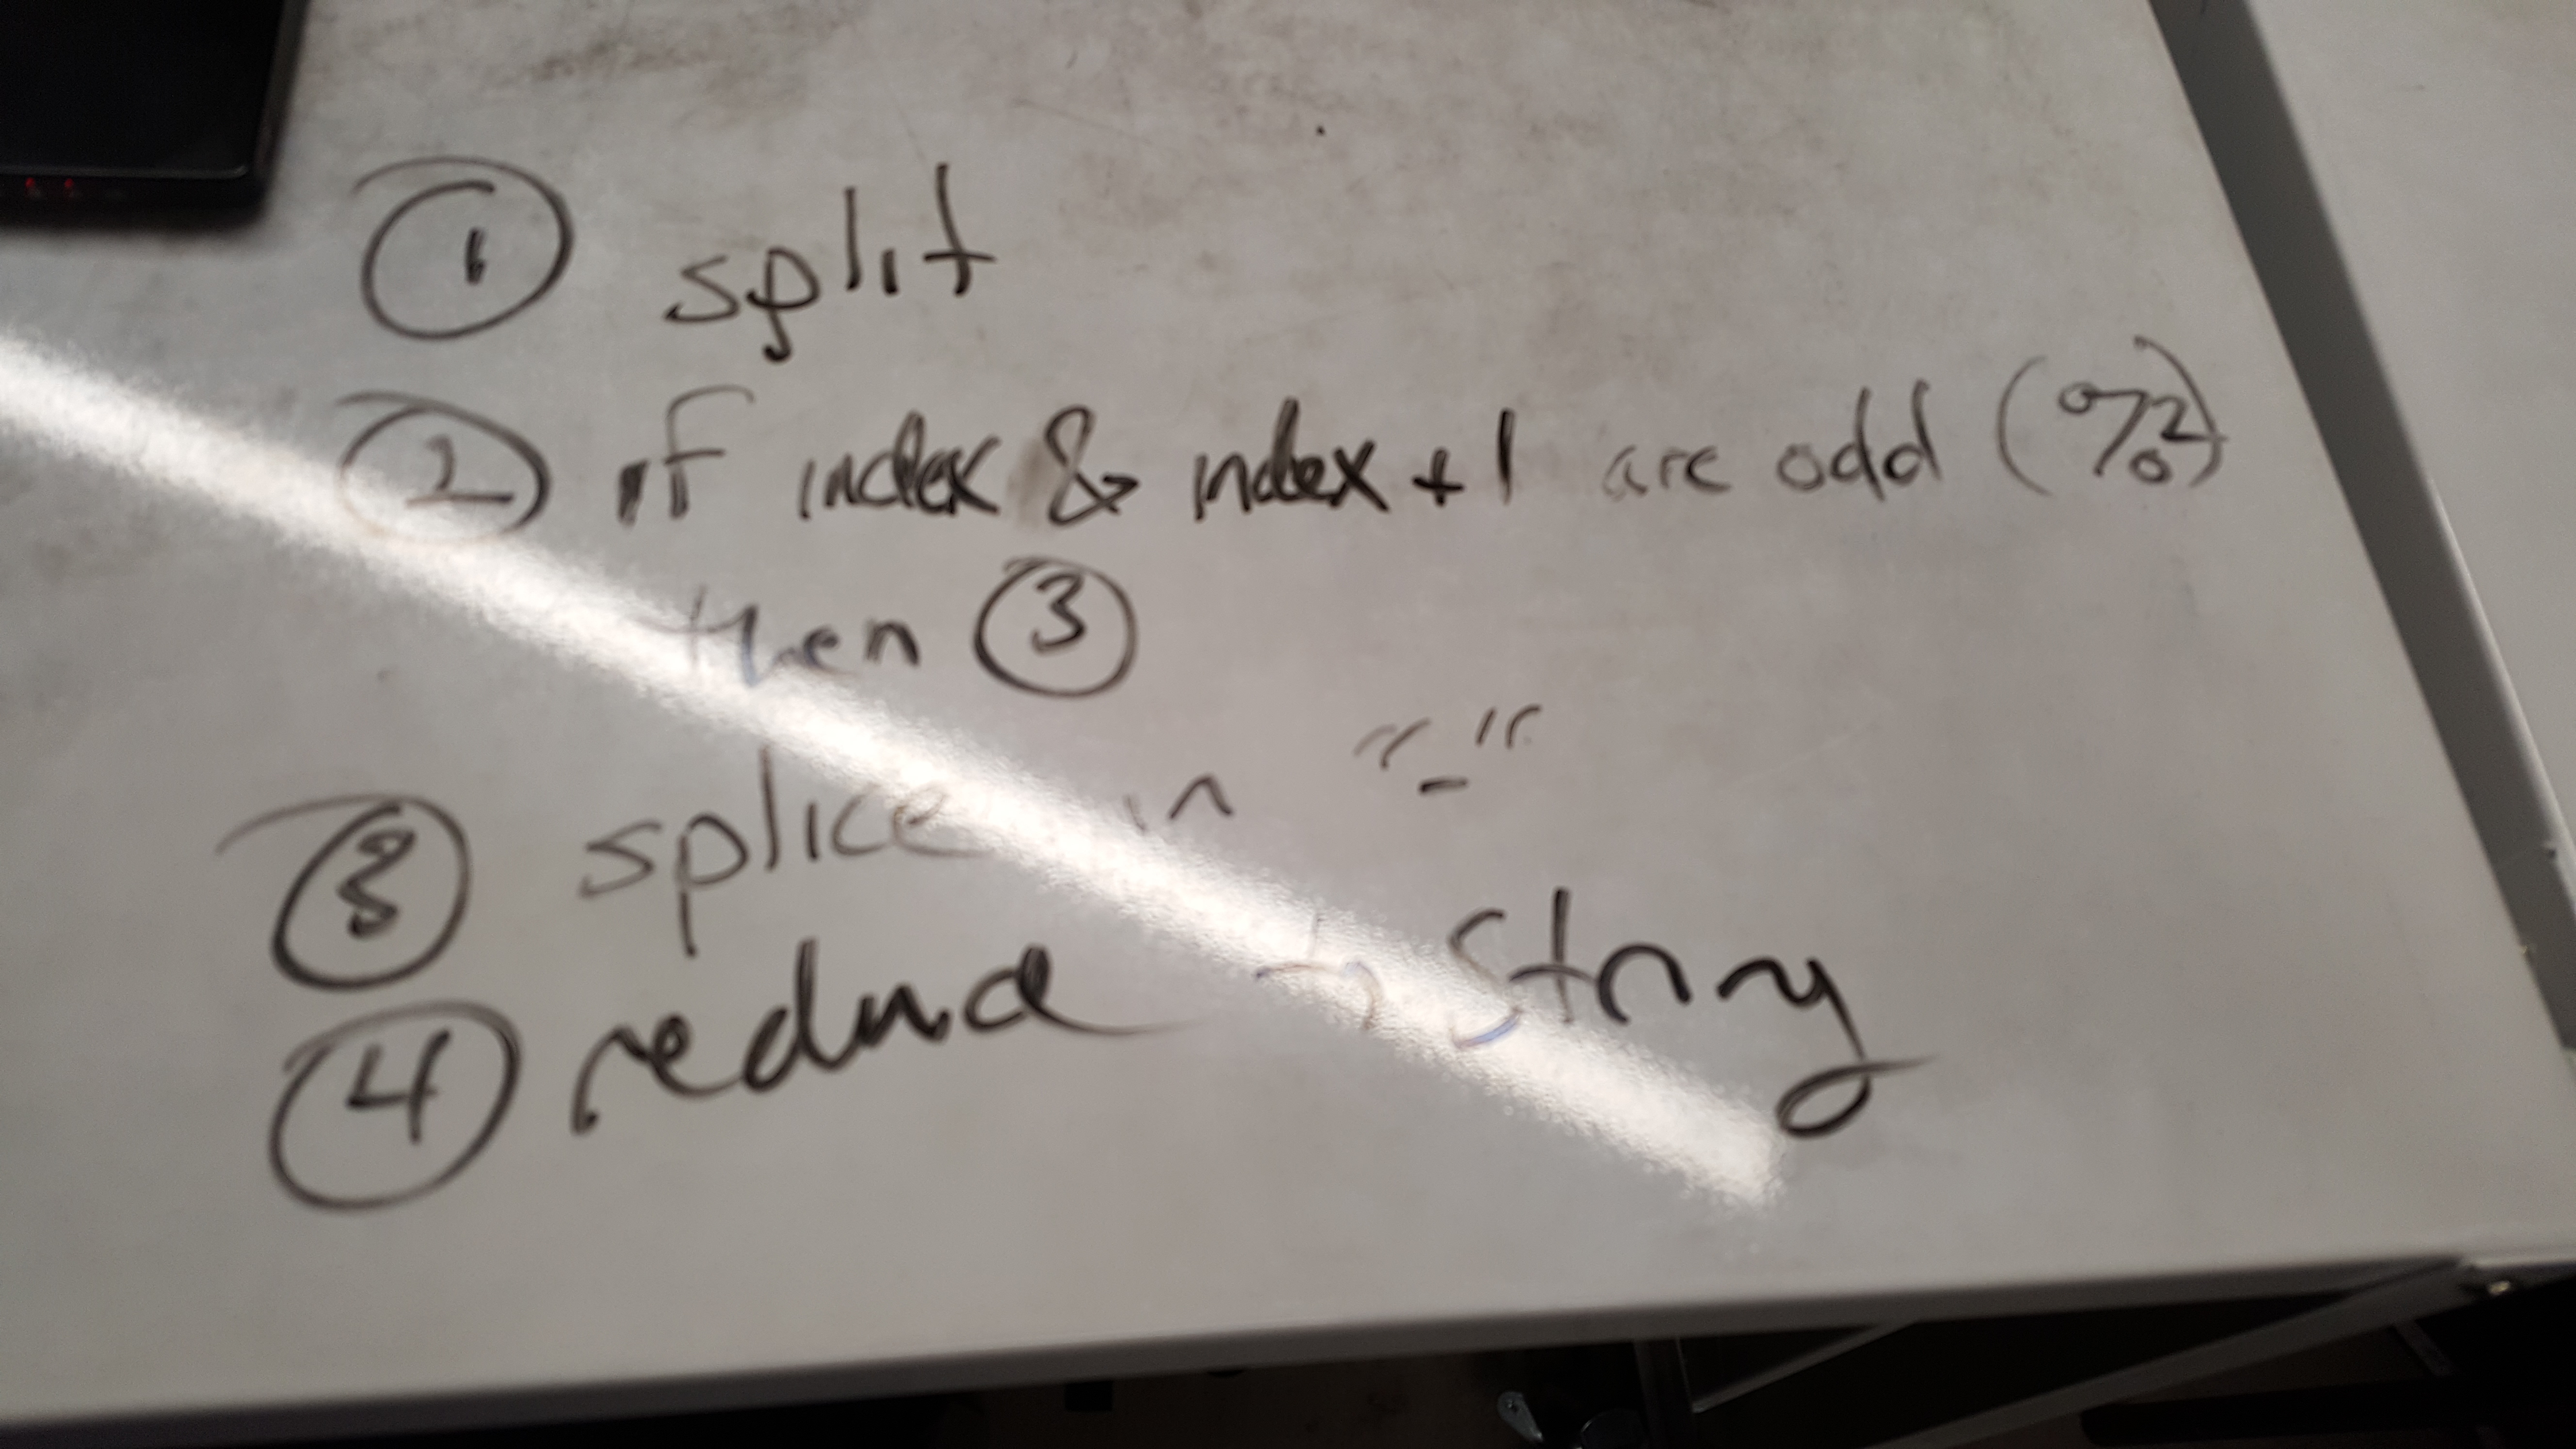 ① split
② if index & index + 1 are odd (%2)
then ③
③ splice in "-"
④ reduce to string